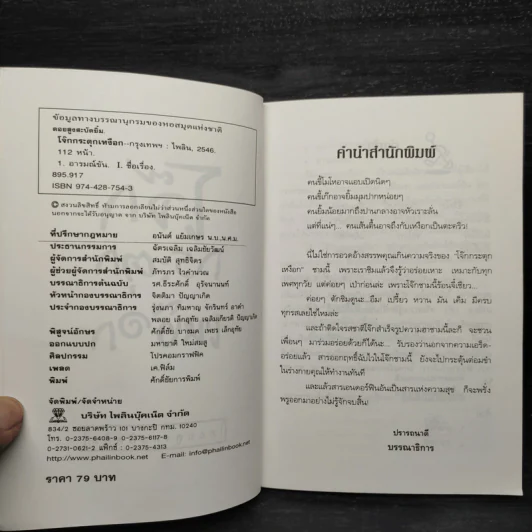 ข้อมูลทางบรรณานุกรมของหอสมุดแห่งชาติ
ดอยสูงสะบัดยิ้ม.
โจ๊กกระตุกเหงือก--กรุงเทพฯ : ไพลิน, 2546.
112 หน้า.
1. อารมณ์ขัน. I. ชื่อเรื่อง.
895.917
ISBN 974-428-754-3
© สงวนลิขสิทธิ์ ห้ามการลอกเลียนไม่ว่าส่วนหนึ่งส่วนใดของหนังสือ
นอกจากจะได้รับอนุญาต จาก บริษัท ไพลินบุ๊คเน็ต จำกัด
ที่ปรึกษากฎหมาย อนันต์ แย้มเกษร น.บ.,น.ศ.ม.
ประธานกรรมการ ฉัตรเฉลิม เฉลิมชัยวัฒน์
ผู้จัดการสำนักพิมพ์ สมบัติ สุทธิจิตร
ผู้ช่วยผู้จัดการสำนักพิมพ์ ภัทรภร ไวคำนวณ
บรรณาธิการต้นฉบับ รศ.ธีระศักดิ์ อุรัจนานนท์
หัวหน้ากองบรรณาธิการ จิตติมา ปัญญาเกิด
ประจำกองบรรณาธิการ
พิสูจน์อักษร
ออกแบบปก มหาชาติ ใหม่สมสู
ศิลปกรรม โปรคอมกราฟฟิค
เพลต เค.ฟิล์ม
พิมพ์ ศักดิ์ชัยการพิมพ์
จัดพิมพ์/จัดจำหน่าย
บริษัท ไพลินบุ๊คเน็ต จำกัด
834/2 ซอยลาดพร้าว 101 บางกะปิ กทม. 10240
โทร. 0-2375-6408-9 0-2375-6117-8
0-2731-0621-2 แฟ็กซ์ : 0-2375-4313
http://www.phailinbook.net E-mail: info@phailinbook.net
ราคา 79 บาท
คำนำสำนักพิมพ์
คนขี้โมโหอาจแอบเปิดนิดๆ
คนขี้เก๊กอาจยิ้มมุมปากหน่อยๆ
คนยิ้มน้อยมากถึงปานกลางอาจหัวเราะลั่น
แต่ที่แน่ๆ... คนเส้นตื้นอาจถึงกับเหงือกเป็นตะคริว!
นี่ไม่ใช่การอวดอ้างสรรพคุณเกินความจริงของ "โจ๊กกระตุก
เหงือก" ชามนี้ เพราะเราชิมแล้วจึงรู้ว่าอร่อยเหาะ เหมาะกับทุก
เพศทุกวัย แต่ค่อยๆ เป่าก่อนล่ะ เพราะโจ๊กชามนี้ร้อนจี๋เชียว...
ค่อยๆ ตักชิมดูนะ...อืม เปรี้ยว หวาน มัน เค็ม มีครบ
ทุกรสเลยใช่ไหมล่ะ
และถ้าติดใจรสชาติโจ๊กสำเร็จรูปความฮาชามนี้ละก็ จะชวน
เพื่อนๆ มาร่วมอร่อยด้วยก็ได้นะ... รับรองว่านอกจากความเอร็ด-
อร่อยแล้ว สารออกฤทธิ์ฉับไวในโจ๊กชามนี้ ยังจะไปกระตุ้นต่อมขำ
ในร่างกายคุณให้ทำงานทันที
และแล้วสารเอนดอร์ฟินอันเป็นสารแห่งความสุข ก็จะพรั่ง
พรูออกมาอย่างไม่รู้จักจบสิ้น!
ปรารถนาดี
บรรณาธิการ